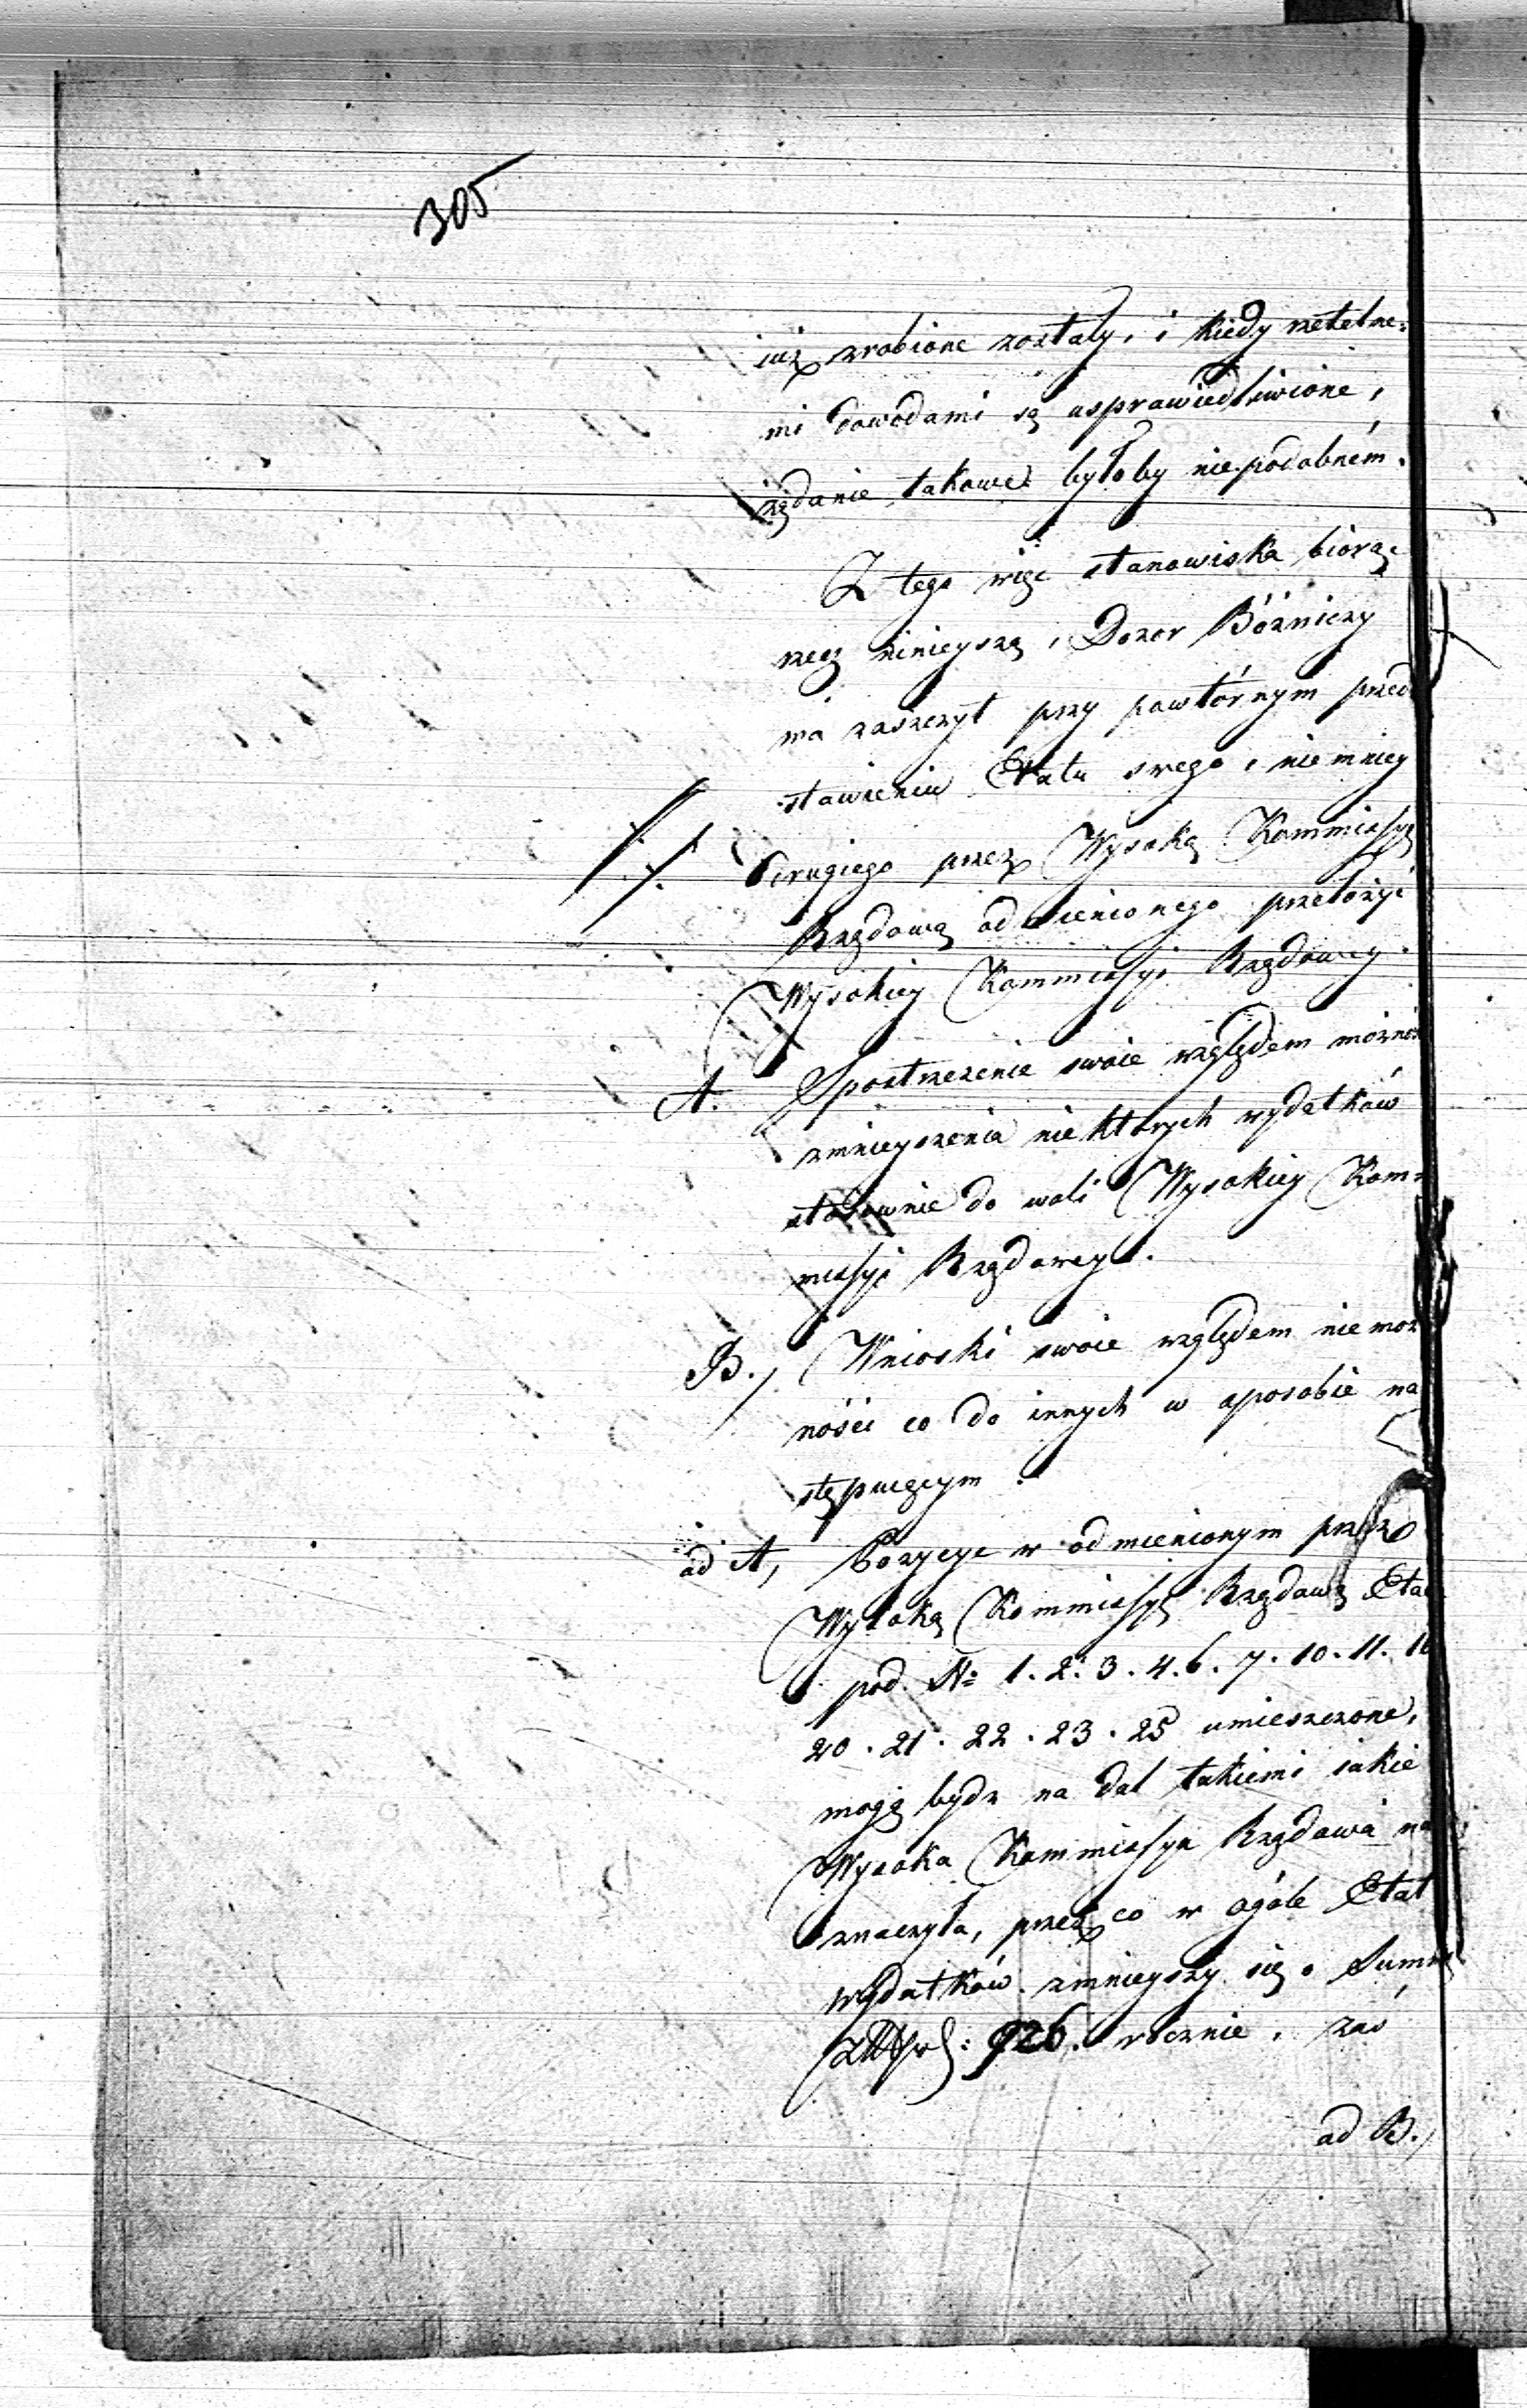 305
iuż zrobione zostały, i kiedy rzetelne-
mi dowodami są usprawiedliwione,
żądanie takowe byłoby niepodobném.
Z tego więc stanowiska biorąc
rzecz ninieyszą, Dozor Bóżniczy
ma zaszczyt przy powtórnym przed
stawieniu Etatu swego, niemniey
drugiego przez Wysoką Kommissyę
Rządową odmienionego przełożyć
Wysokiey Kommissyi Rządowey.
A. Spostrzeżenie swoie względem możnoś
zmnieyszenia niektórych wydatków
stosownie do woli Wysokiey Kom-
missyi Rządowey.
B./ Wnioski swoie względem niemoż
ności co do innych w sposobie na
stępuiącym.
ad A, Pozycye w odmienionym przez
Wysoką Kommissyę Rządową Eta
pod N= 1. 2. 3. 4. 6. 7. 10. 11.
20. 21. 22. 23. 25 umieszczone,
mogą bydz na dal takiemi iakie
Wysoka Kommissya Rządowa na
znaczyła, przez co w ogóle Etat
wydatków zmnieyszy się o Summę
926. rocznie, zaś
ad B./